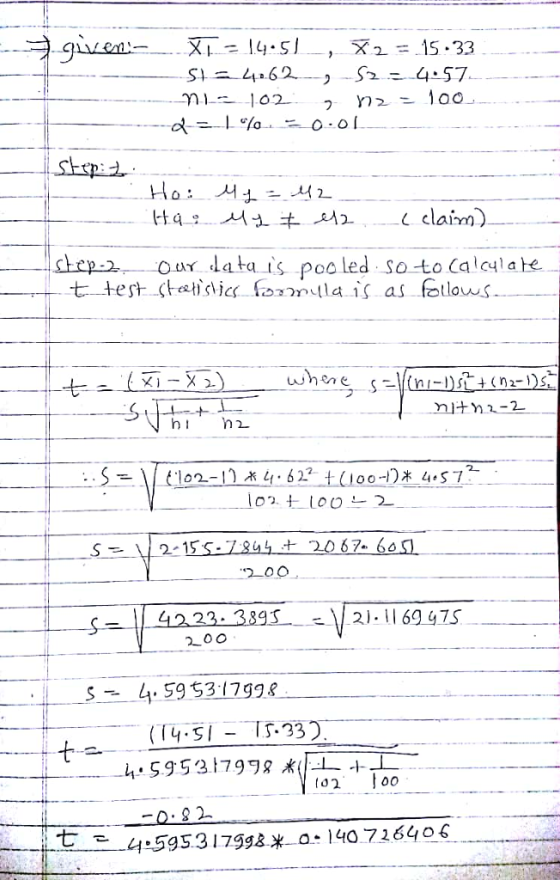 ⇒ given:- x̄1 = 14.51 , x̄2 = 15.33
S1 = 4.62 , S2 = 4.57
n1 = 102 , n2 = 100
α = 1% = 0.01
Step:1
Ho: μ1 = μ2
Ha: μ1 ≠ μ2 (claim)
step-2 our data is pooled so to calculate
t test statistics formula is as follows.
t = (x̄1 - x̄2) / S√(1/n1 + 1/n2) where, s = √((n1-1)s1² + (n2-1)s2² / n1+n2-2)
∴ S = √((102-1) * 4.62² + (100-1) * 4.57² / 102 + 100 - 2)
S = √(2155.7844 + 2067.6051 / 200)
S = √(4223.3895 / 200) = √21.1169475
S = 4.595317998
t = (14.51 - 15.33) / 4.595317998 * √(1/102 + 1/100)
t = -0.82 / 4.595317998 * 0.140726406